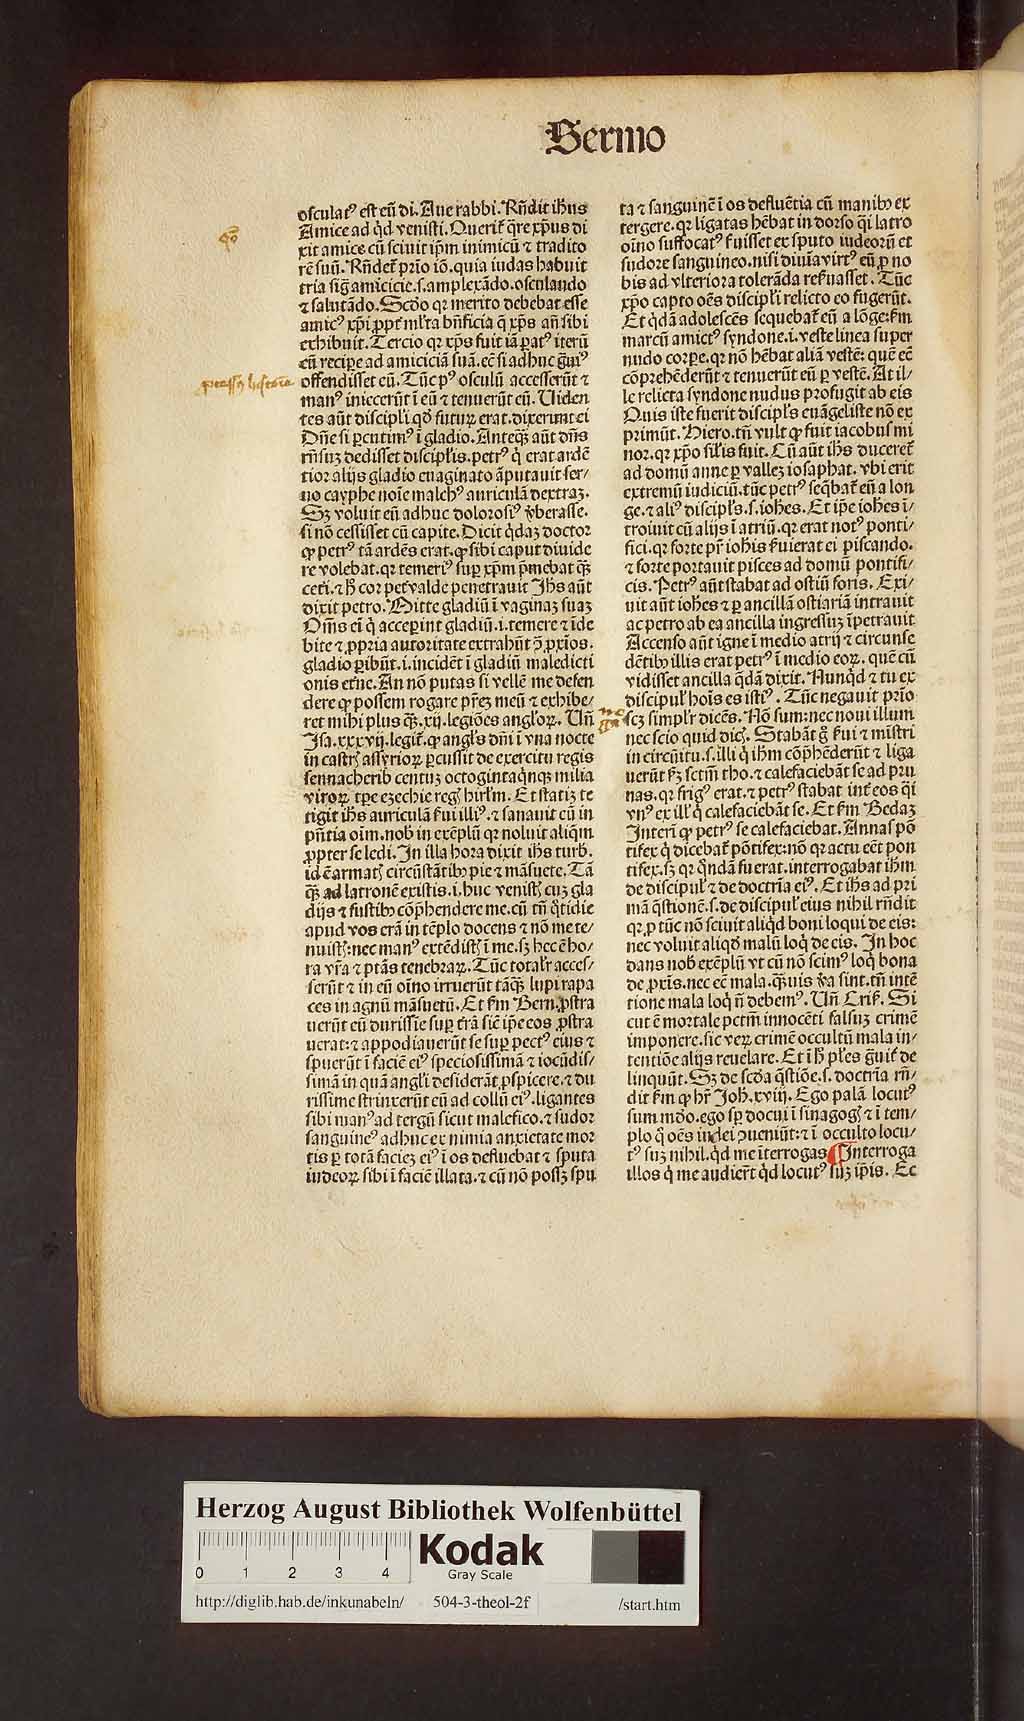 Sermo
osculatꝰ est eū di. Aue rabbi. Rn̄dit ihūs
Amice ad qd̓ venisti. Querit̄ q̄re xp̄us di
xit amice cū sciuit ip̄m inimicū ⁊ tradito
rē suū. Rn̄det̄ prīo iō. quia iudas habuit
tria siḡ amicicie. s. amplexādo. osculando
⁊ salutādo. Scd̄o qr merito debebat esse
amicꝰ xp̄i ꝓpt̄ ml̓ta bn̄ficia q̄ xp̄s an̄ sibi
exhibuit. Tercio qr xp̄s fuit iā ꝑatꝰ iterū
eū recipe ad amiciciā suā. ec̄ si adhuc g̈uiꝰ
offendisset eū. Tūc pꝰ osculū accesserūt ⁊
manꝰ iniecerūt ī eū ⁊ tenuerūt eū. Uiden
tes aūt discipl̓i qd̓ futurꝝ erat. dixerunt ei
Dn̄e si ꝑcutimꝰ ī gladio. Anteqꝫ aūt dn̄s
rn̄suꝫ dedisset discipl̓is. petrꝰ q̓ erat ardē
tior alijs gladio euaginato āputauit ser⸗
uo cayphe noīe malchꝰ auriculā dextraꝫ.
Sꝫ voluit eū adhuc dolorosiꝰ v̓berasse.
si nō cessisset cū capite. Dicit q̓daꝫ doctor
ꝙ petrꝰ tā ardēs erat. ꝙ sibi caput diuide
re volebat. qr temeriꝰ suꝑ xp̄m p̄mebat qꝫ
cet̄i. ⁊ h̄ cor pet̓ valde penetrauit Jhs aūt
dixit petro. Mitte gladiū ī vaginaꝫ suaꝫ
Om̄s ei q̓ acceꝑint gladiū. i. temere ⁊ īde
bite ⁊ ꝓpria autoritate extrahūt ꝯ̄ ꝓxīos.
gladio ꝑibūt. i. incidēt ī gladiū maledicti
onis et̓ne. An nō putas si vellē me defen
dere ꝙ possem rogare pr̄eꝫ meū ⁊ exhibe⸗
ret mihi plus qꝫ. xij. legiōes angl̓oꝝ. Un̄
Isa. xxxvij. legit̄. ꝙ angl̓s dn̄i ī vna nocte
in castrꝭ assyrioꝝ ꝑcussit de exercitu regis
sennacherib centuꝫ octogintaqn̓qꝫ milia
viroꝝ tp̄e ezechie regꝭ hirl̓m. Et statiꝫ te
tigit ihs auriculā s̓ui illiꝰ. ⁊ sanauit eū in
pn̄tia oīm. nob̓ in exēplū qr noluit aliqm̄
ꝓpter se ledi. In illa hora dixit ihs turb.
id ē armatꝭ circūstātibꝰ pie ⁊ māsuete. Tā
qꝫ ad latronē existis. i. huc venistꝭ cuꝫ gla
dijs ⁊ fustibꝰ cōp̄hendere me. cū tn̄ q̓tidie
apud vos erā in tēplo docens ⁊ nō me te⸗
nuistꝭ: nec manꝰ extēdistꝭ ī me. sꝫ hec ē ho⸗
ra vr̄a ⁊ ptās tenebraꝝ. Tūc total̓r acces⸗
serūt ⁊ in eū oīno irruerūt tāqꝫ lupi rapa
ces in agnū māsuetū. Et s̓m Bern. ꝓstra
uerūt eū durissie suꝑ t̓rā sic̄ ip̄e eos ꝓstra
uerat: ⁊ appodiauerūt se suꝑ pectꝰ eius ⁊
spuerūt ī faciē eiꝰ speciosissimā ⁊ iocūdis⸗
simā in quā angl̓i desiderāt ꝓspicere. ⁊ du
rissime strinxerūt eū ad collū eiꝰ. ligantes
sibi manꝰ ad tergū sicut malefico. ⁊ sudor
sanguineꝰ adhuc ex nimia anxietate mor
tis ꝑ totā facieꝫ eiꝰ ī os defluebat ⁊ sputa
iudeoꝝ sibi ī faciē illata. ⁊ cū nō possꝫ spu
ta ⁊ sanguinē ī os defluētia cū manibꝰ ex
tergere. qr ligatas hēbat in dorso qi̓ latro
oīno suffocatꝰ fuisset ex sputo iudeorū et
sudore sanguineo. nisi diuīa virtꝰ eū ꝓ no
bis ad vlteriora tolerāda res̓uasset. Tūc
xp̄o capto oēs discipl̓i relicto eo fugerūt.
Et q̓dā adolescēs sequebat̄ eū a lōge: s̓m
marcū amictꝰ syndone. i. veste linea super
nudo corꝑe. qr nō hēbat aliā vestē: quē ec̄
cōprehēderūt ⁊ tenuerūt eū ꝑ vestē. At il⸗
le relicta syndone nudus profugit ab eis
Quis iste fuerit discipl̓s euāgeliste nō ex
primūt. Hiero. tn̄ vult ꝙ fuit iacobus mi
nor. qr xp̄o sil̓is fuit. Cū aūt ihs duceret̄
ad domū anne ꝑ valleꝫ iosaphat. vbi erit
extremū iudiciū. tūc petrꝰ seq̓bat̄ eū a lon
ge. ⁊ aliꝰ discipl̓s. s. ioh̄es. Et ip̄e ioh̄es ī⸗
troiuit cū alijs ī atriū. qr erat notꝰ ponti⸗
fici. qr forte pr̄ ioh̄is s̓uierat ei piscando.
⁊ forte portauit pisces ad domū pontifi⸗
cis. Petrꝰ aūt stabat ad ostiū foris. Exi⸗
uit aūt ioh̄es ⁊ ꝑ ancillā ostiariā intrauit
ac petro ab ea ancilla ingressuꝫ īpetrauit
Accenso aūt igne ī medio atrij ⁊ circunse
dētibꝰ illis erat petrꝰ ī medio eoꝝ. quē cū
vidisset ancilla q̄dā dixit. Nunq̓d ⁊ tu ex
discipul̓ hoīs es istiꝰ. Tūc negauit prīo
scꝫ simpl̓r dicēs. Nō sum: nec noui illum
nec scio quid dicꝭ. Stabāt g̊ s̓ui ⁊ mīstri
in circūitu. s. illi q̓ ihm̄ cōp̄hēderūt ⁊ liga
uerūt sꝫ sctm̄ tho. ⁊ calefaciebāt se ad pru
nas. qr frigꝰ erat. ⁊ petrꝰ stabat int̓ eos qi̓
vnꝰ ex ill̓ q̓ calefaciebāt se. Et s̓m Bedaꝫ
Interī ꝙ petrꝰ se calefaciebat. Annas pō
tifex q̓ dicebat̄ pōtifex: nō qr actu eēt pon
tifex. sꝫ qr q̓ndā fuerat. interrogabat ihm̄
de discipul̓ ⁊ de doctrīa eiꝰ. Et ihs ad pri
mā q̄stionē. s. de discipul̓ eius nihil rn̄dit
qr. ꝓ tūc nō sciuit aliq̓d boni loqui de eis:
nec voluit aliqd̓ malū loq̓ de eis. In hoc
dans nob̓ exēplū vt cū nō scimꝰ loq̓ bona
de ꝓxīs. nec ec̄ mala. qꝫuis v̓a sint. tn̄ intē
tione mala loq̓ n̄ debemꝰ. Un̄ Cris̓. Si
cut ē mortale pctm̄ innocēti falsuꝫ crimē
imponere. sic veꝝ crimē occultū mala in⸗
tentiōe alijs reuelare. Et ī h̄ pl̓es g̈uit̓ de
linquūt. Sꝫ de scd̄a q̄stiōe. s. doctrīa rn̄⸗
dit s̓m ꝙ hr̄ Joh̄. xviij. Ego palā locutꝰ
sum mūdo. ego sp̄ docui ī sinagogꝭ ⁊ ī tem⸗
plo q̊ oēs iudei ꝯueniūt: ⁊ ī occulto locu⸗
tꝰ suꝫ nihil. q̓d me īterrogas ¶ Interroga
illos q̓ me audierūt q̓d locutꝰ suꝫ ip̄is. Ec
Herzog August Bibliothek Wolfenbüttel
0 1 2 3 4
Kodak
Gray Scale
http://diglib.hab.de/inkunabeln/ 504-3-theol-2f /start.htm